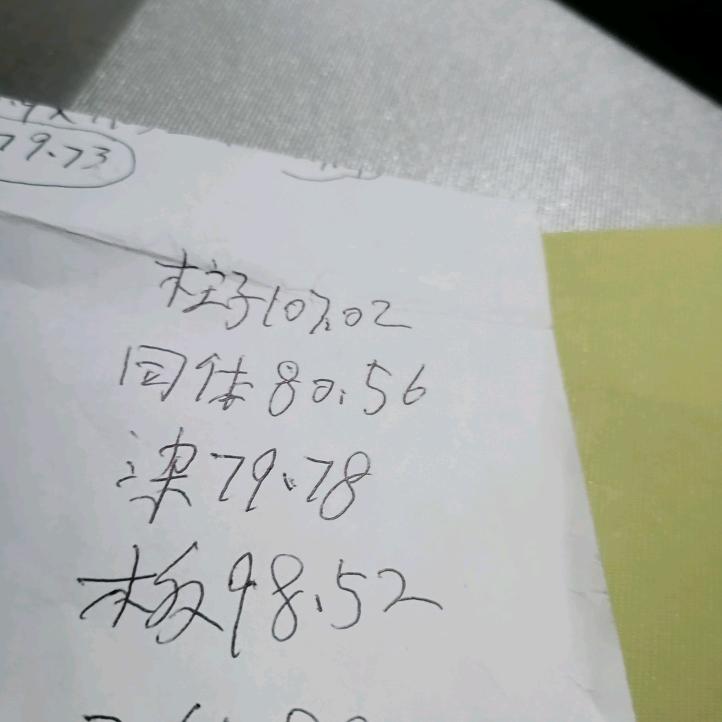 79.73
柱子107.02
同体80.56
梁79.78
板98.52